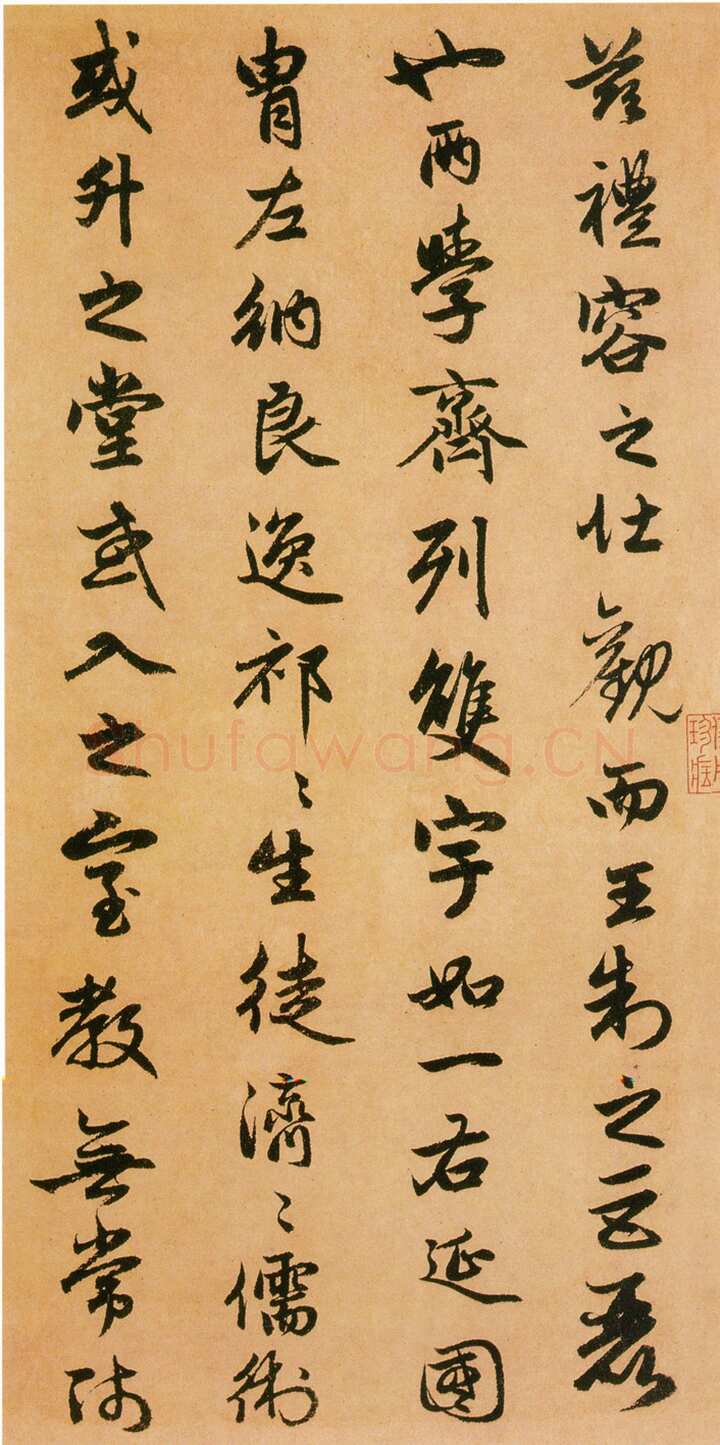 茲禮容之壯觀而王制之巨麗
也兩學齊列雙宇如一右延國
胄左納良逸祁〻生徒濟〻儒術
或升之堂或入之室教無常師
Shufawang.CN